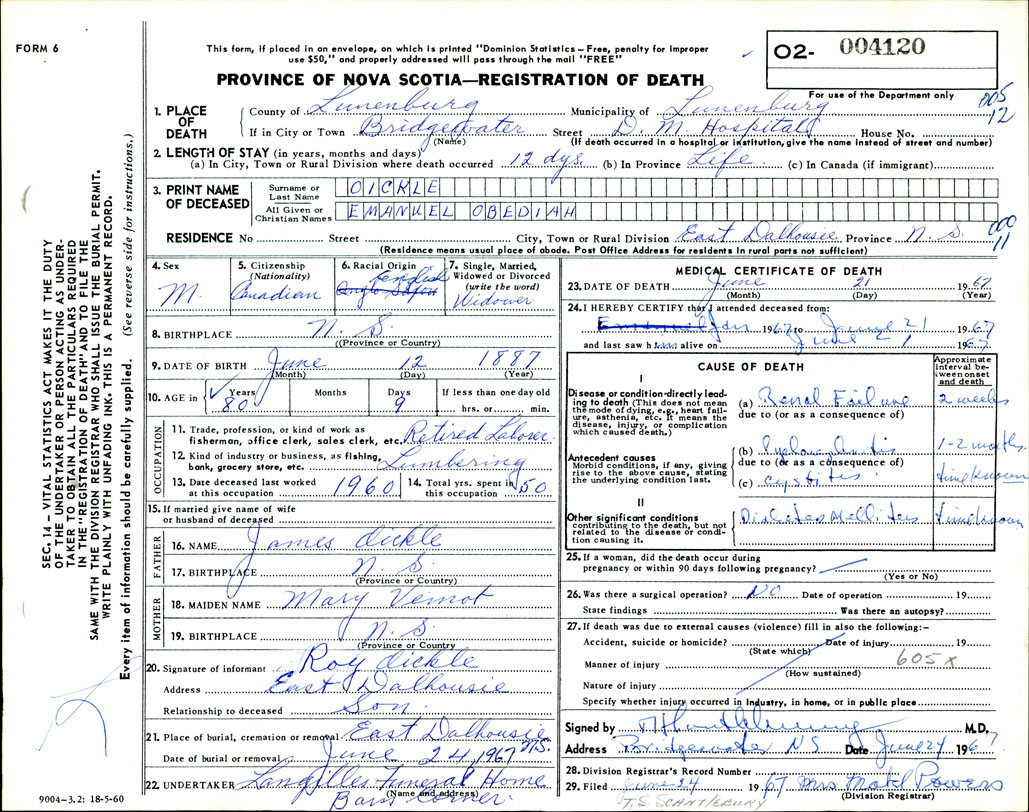 FORM 6
This form, if placed in an envelope, on which is printed "Dominion Statistics – Free, penalty for improper
use $50," and properly addressed will pass through the mail "FREE"
O2- 004120
PROVINCE OF NOVA SCOTIA—REGISTRATION OF DEATH
For use of the Department only
005
12
1. PLACE OF DEATH
County of Lunenburg Municipality of Lunenburg
If in City or Town Bridgewater Street D. M. Hospital House No.
(Name) (If death occurred in a hospital or institution, give the name instead of street and number)
2. LENGTH OF STAY (in years, months and days)
(a) In City, Town or Rural Division where death occurred 12 dys. (b) In Province Life (c) In Canada (if immigrant)
3. PRINT NAME OF DECEASED
Surname or Last Name OICKLE
All Given or Christian Names EMANUEL OBEDIAH
000
11
RESIDENCE No Street City, Town or Rural Division East Dalhousie Province N. S.
(Residence means usual place of abode. Post Office Address for residents in rural parts not sufficient)
4. Sex
M.
5. Citizenship
(Nationality)
Canadian
6. Racial Origin
English
7. Single, Married,
Widowed or Divorced
(write the word)
Widower
8. BIRTHPLACE N. S.
(Province or Country)
9. DATE OF BIRTH June 12 1887
(Month) (Day) (Year)
10. AGE in Years 80 Months Days 9 If less than one day old
hrs. or min.
OCCUPATION
11. Trade, profession, or kind of work as
fisherman, office clerk, sales clerk, etc. Retired Laborer
12. Kind of industry or business, as fishing,
bank, grocery store, etc. Lumbering
13. Date deceased last worked
at this occupation 1960
14. Total yrs. spent in
this occupation 50
15. If married give name of wife
or husband of deceased
FATHER
16. NAME James Oickle
17. BIRTHPLACE N. S.
(Province or Country)
MOTHER
18. MAIDEN NAME Mary Veinot
19. BIRTHPLACE N. S.
(Province or Country)
20. Signature of informant Roy Oickle
Address East Dalhousie
Relationship to deceased Son.
21. Place of burial, cremation or removal East Dalhousie N.S.
Date of burial or removal June 24, 1967
22. UNDERTAKER Langilles Funeral Home
(Name and address)
Barss Corner.
MEDICAL CERTIFICATE OF DEATH
23. DATE OF DEATH June 21 1967
(Month) (Day) (Year)
24. I HEREBY CERTIFY that I attended deceased from:
Jan 1967 to June 21 1967
and last saw h alive on June 21 1967
CAUSE OF DEATH
Approximate
interval be-
tween onset
and death
I
Disease or condition-directly lead-
ing to death (This does not mean
the mode of dying, e.g., heart fail-
ure, asthenia, etc. It means the
disease, injury, or complication
which caused death.)
(a) Renal Failure 2 weeks
due to (or as a consequence of)
Antecedent causes
Morbid conditions, if any, giving
rise to the above cause, stating
the underlying condition last.
(b) Pyelonephritis 1-2 months
due to (or as a consequence of)
(c) Cystitis
II
Other significant conditions
contributing to the death, but not
related to the disease or condi-
tion causing it.
Diabetes Mellitus
25. If a woman, did the death occur during
pregnancy or within 90 days following pregnancy?
(Yes or No)
26. Was there a surgical operation? NO Date of operation 19
State findings Was there an autopsy?
27. If death was due to external causes (violence) fill in also the following:-
Accident, suicide or homicide? Date of injury 19
(State which)
Manner of injury 605x
(How sustained)
Nature of injury
Specify whether injury occurred in industry, in home, or in public place
Signed by M.D.
Address Bridgewater NS Date June 24 1967
28. Division Registrar's Record Number
29. Filed June 24 1967 Mrs Powers
(Division Registrar)
T.S. SCANTLEBURY
SEC. 14 – VITAL STATISTICS ACT MAKES IT THE DUTY
OF THE UNDERTAKER OR PERSON ACTING AS UNDER-
TAKER TO OBTAIN ALL THE PARTICULARS REQUIRED
IN THE "REGISTRATION OF DEATH" AND TO FILE THE
SAME WITH THE DIVISION REGISTRAR WHO SHALL ISSUE THE BURIAL PERMIT.
WRITE PLAINLY WITH UNFADING INK. THIS IS A PERMANENT RECORD.
Every item of information should be carefully supplied. (See reverse side for instructions.)
9004–3.2: 18-5-60